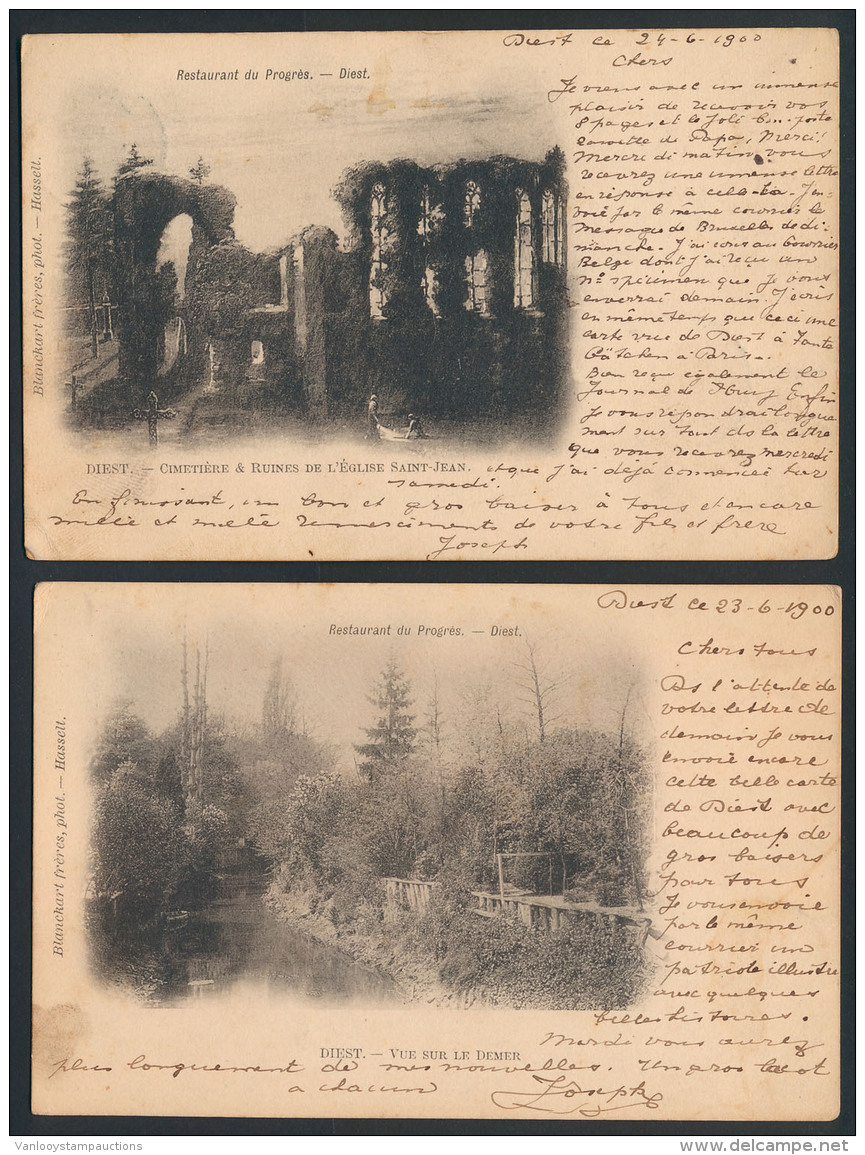 Diest ce 24-6-1900
Chers
Restaurant du Progrès. — Diest.
Blanckart frères, phot. — Hasselt.
Je viens avec un immense
plaisir de recevoir vos
8 pages et le joli
de Papa, Merci!
Mercredi matin vous
recevrez une immense lettre
en réponse à celle-la. J'en-
voie par le même courrier le
Message de Bruxelles de di-
manche. J'ai écris au Courrier
Belge dont j'ai reçu un
No spécimen que je vous
enverrai demain. J'écris
en même temps que ceci une
carte vue de Diest à Tante
à Paris.
Bien reçu également le
Journal de Huy Enfin
Je vous répondrai longue
ment sur tout ds la lettre
que vous recevrez mercredi
DIEST. — CIMETIÈRE & RUINES DE L'ÉGLISE SAINT-JEAN.
et que j'ai déjà commencée
samedi.
En finissant, un bon et gros baiser à tous et encore
mille et mille remerciements de votre fils et frère
Joseph
Diest ce 23-6-1900
Restaurant du Progrès. — Diest.
Blanckart frères, phot. — Hasselt.
Chers tous
Ds l'attente de
votre lettre de
demain je vous
envoie encore
cette belle carte
de Diest avec
beaucoup de
gros baisers
pour tous
Je vous envoie
par le même
courrier un
patriote illustre
avec quelques
belles histoires.
Mardi vous aurez
DIEST. — VUE SUR LE DEMER
plus longuement de mes nouvelles. Un gros
a chacun
Joseph
Vanlooystampauctions
www.delcampe.net